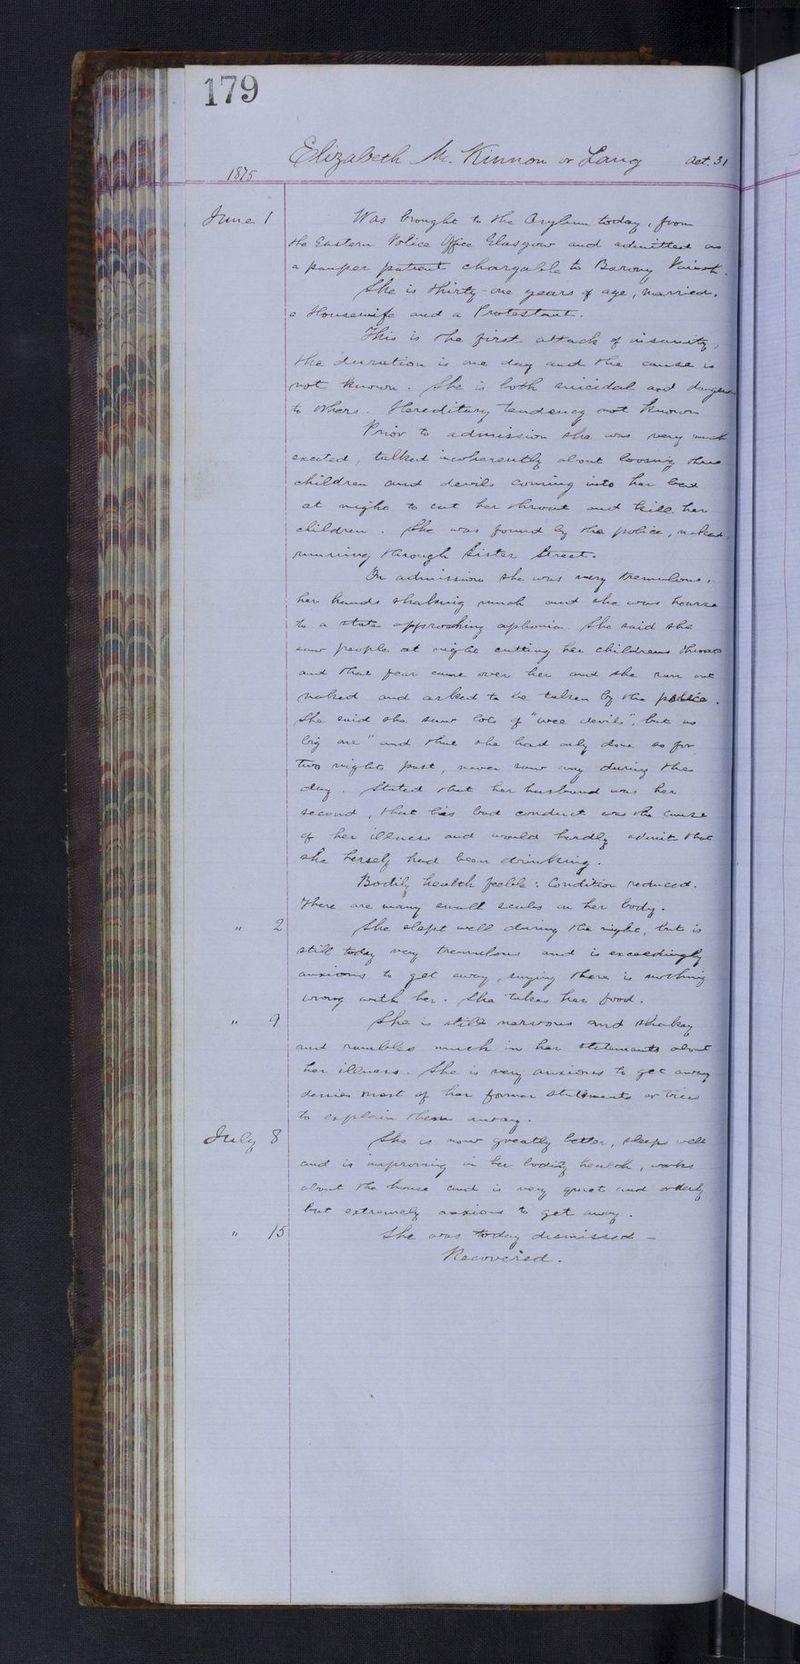 179
Elizabeth Mc. Kinnon or Lang aet. 31
1875
June 1 Was brought to the Asylum today, from
the Eastern Police Office Glasgow and admitted as
a pauper patient chargable to Barony Parish.
She is thirty-one years of age, married,
a Housewife and a Protestant.
This is the first attack of insanity,
the duration is one day and the cause is
not known. She is both suicidal and dangerous
to others. Hereditary tendency not known
Prior to admission she was very much
excited, talked incoherently about loosing three
children and devils coming into her bed
at night to cut her throat and kill her
children. She was found by the police, naked,
running through Sister Street.
On admission she was very tremulous,
her hands shaking much and she was hoarse
to a state approching aphonia. She said she
saw people at night cutting her childrens throats
and that fear came over her and she ran out
naked and asked to be taken by the police.
She said she saw lots of "wee devils", but no
big one" and that she had only done so for
two nights past, never saw any during the
day. Stated that her husband was her
second, that his bad conduct was the cause
of her illness and would hardly admit that
she herself had been drinking.
Bodily health feeble: Condition reduced.
There are many small scabs on her body.
" 2 She slept well during the night, but is
still today very tremulous and is exceedingly
anxious to get away, saying there is nothing
wrong with her. She takes her food.
" 9 She is still nervous and shakey
and rambles much in her statements about
her illness. She is very anxious to get away
denies most of her former statements or tries
to explain them away.
July 8 She is now greatly better, sleeps well
and is improving in her bodily health, works
about the house and is very quiet and orderly
but extremely anxious to get away.
" 15 She was today dismissed –
Recovered.